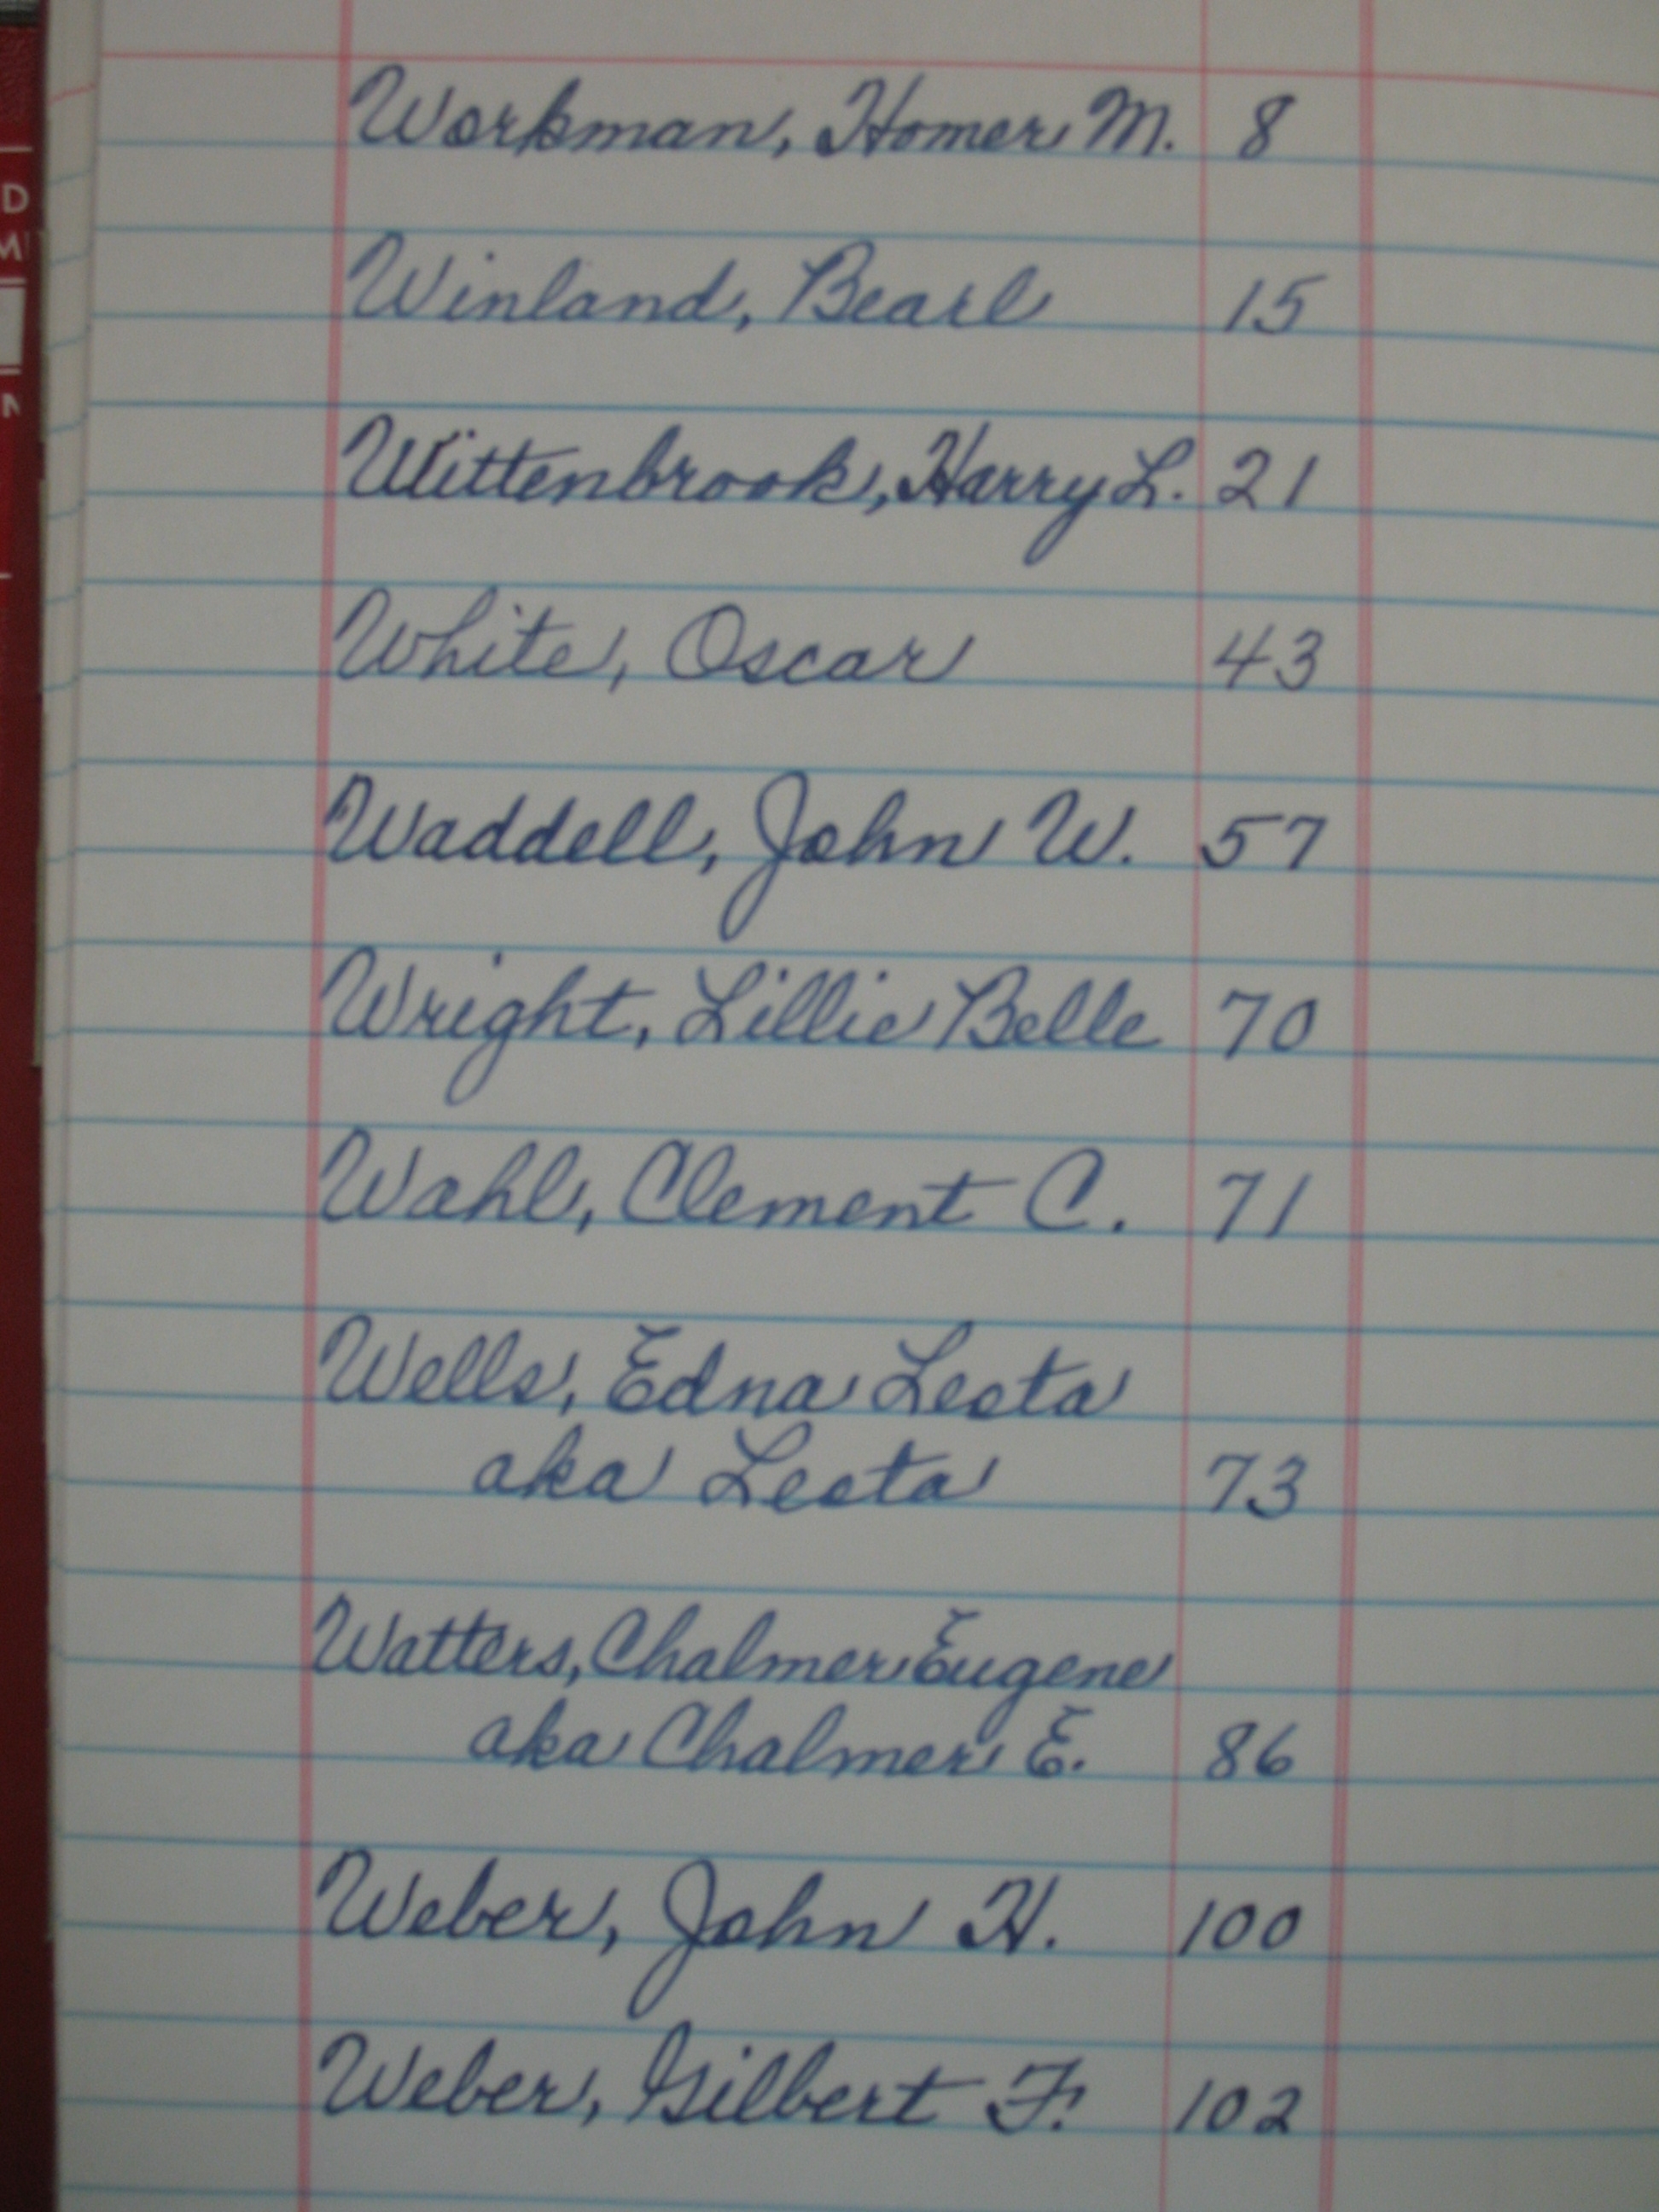 D
MI
N
Workman, Homer M. 8
Winland, Bearl 15
Wittenbrook, Harry L. 21
White, Oscar 43
Waddell, John W. 57
Wright, Lillie Belle 70
Wahl, Clement C. 71
Wells, Edna Leota
aka Leota 73
Watters, Chalmer Eugene
aka Chalmer E. 86
Weber, John H. 100
Weber, Gilbert F. 102